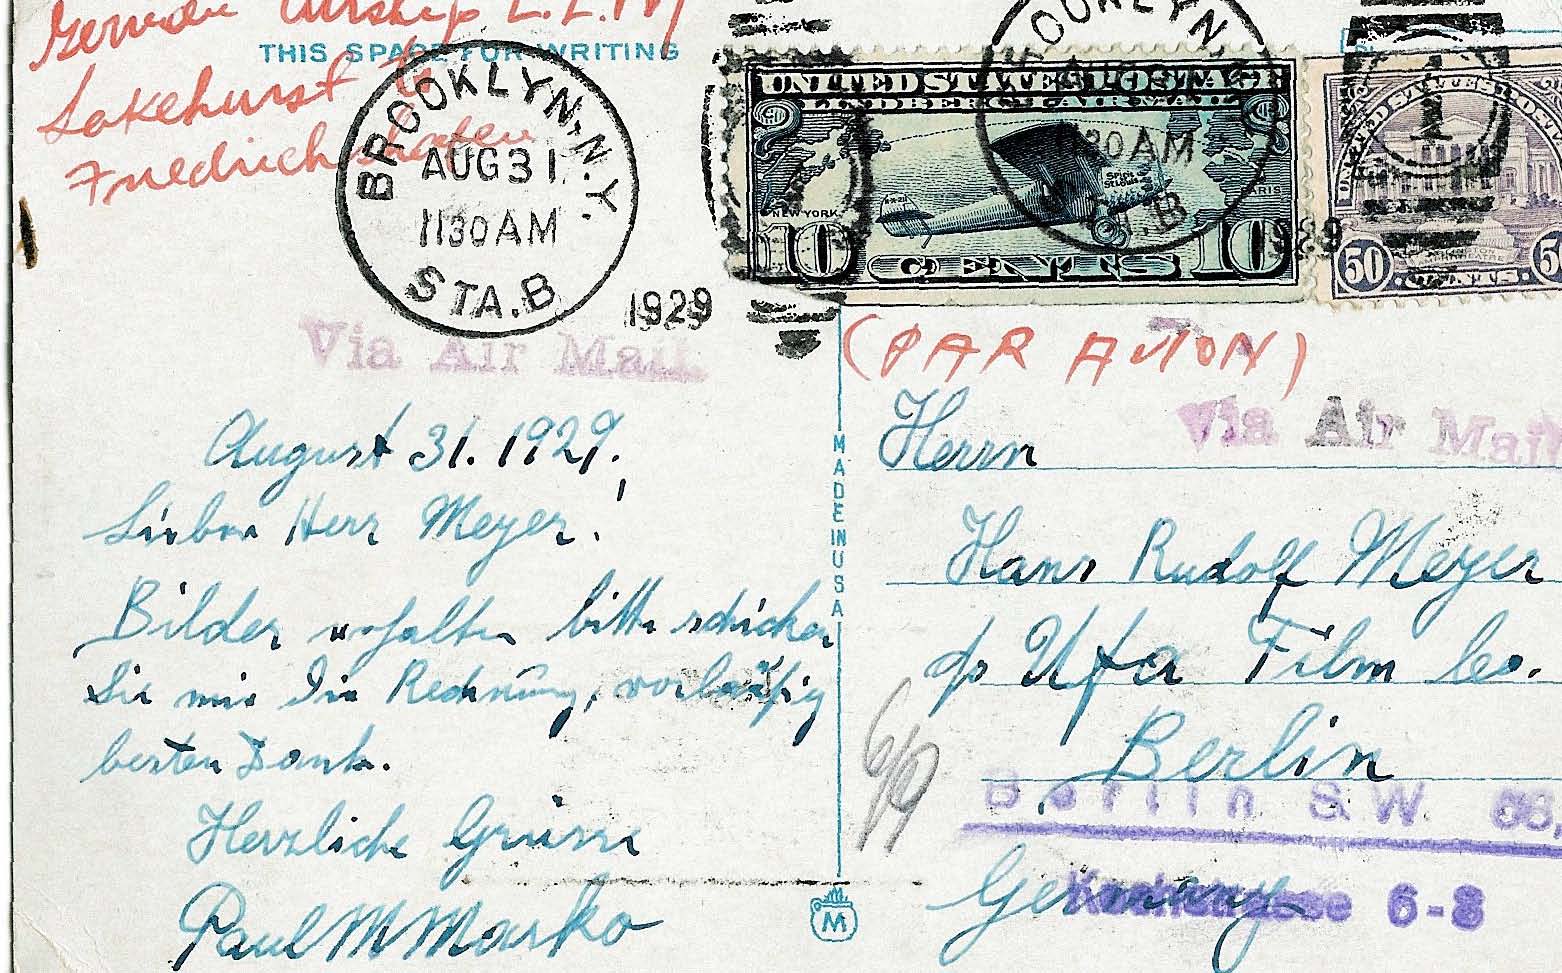 German Airship L.Z. 127
Lakehurst to
Friedrichshafen
THIS SPACE FOR WRITING
BROOKLYN, N.Y.
AUG 31
1130 AM
STA. B
1929
BROOKLYN
1130 AM
STA. B
1929
UNITED STATES POSTAGE
LINDBERGH AIR MAIL
SPIRIT
ST. LOUIS
NEW YORK
PARIS
10 CENTS 10
UNITED STATES POSTAGE
50 CENTS 50
1
Via Air Mail
August 31. 1929.
Lieber Herr Meyer!
Bilder erhalten bitte schicken
Sie mir die Rechnung, vorläufig
besten Dank.
Herzliche Grüsse
Paul M Marko
MADE IN USA
M
(PAR AVION)
Via Air Mail
Herrn
Hans Rudolf Meyer
Ufa Film Co.
Berlin
Berlin S.W. 68,
Germany
Kochstrasse 6-8